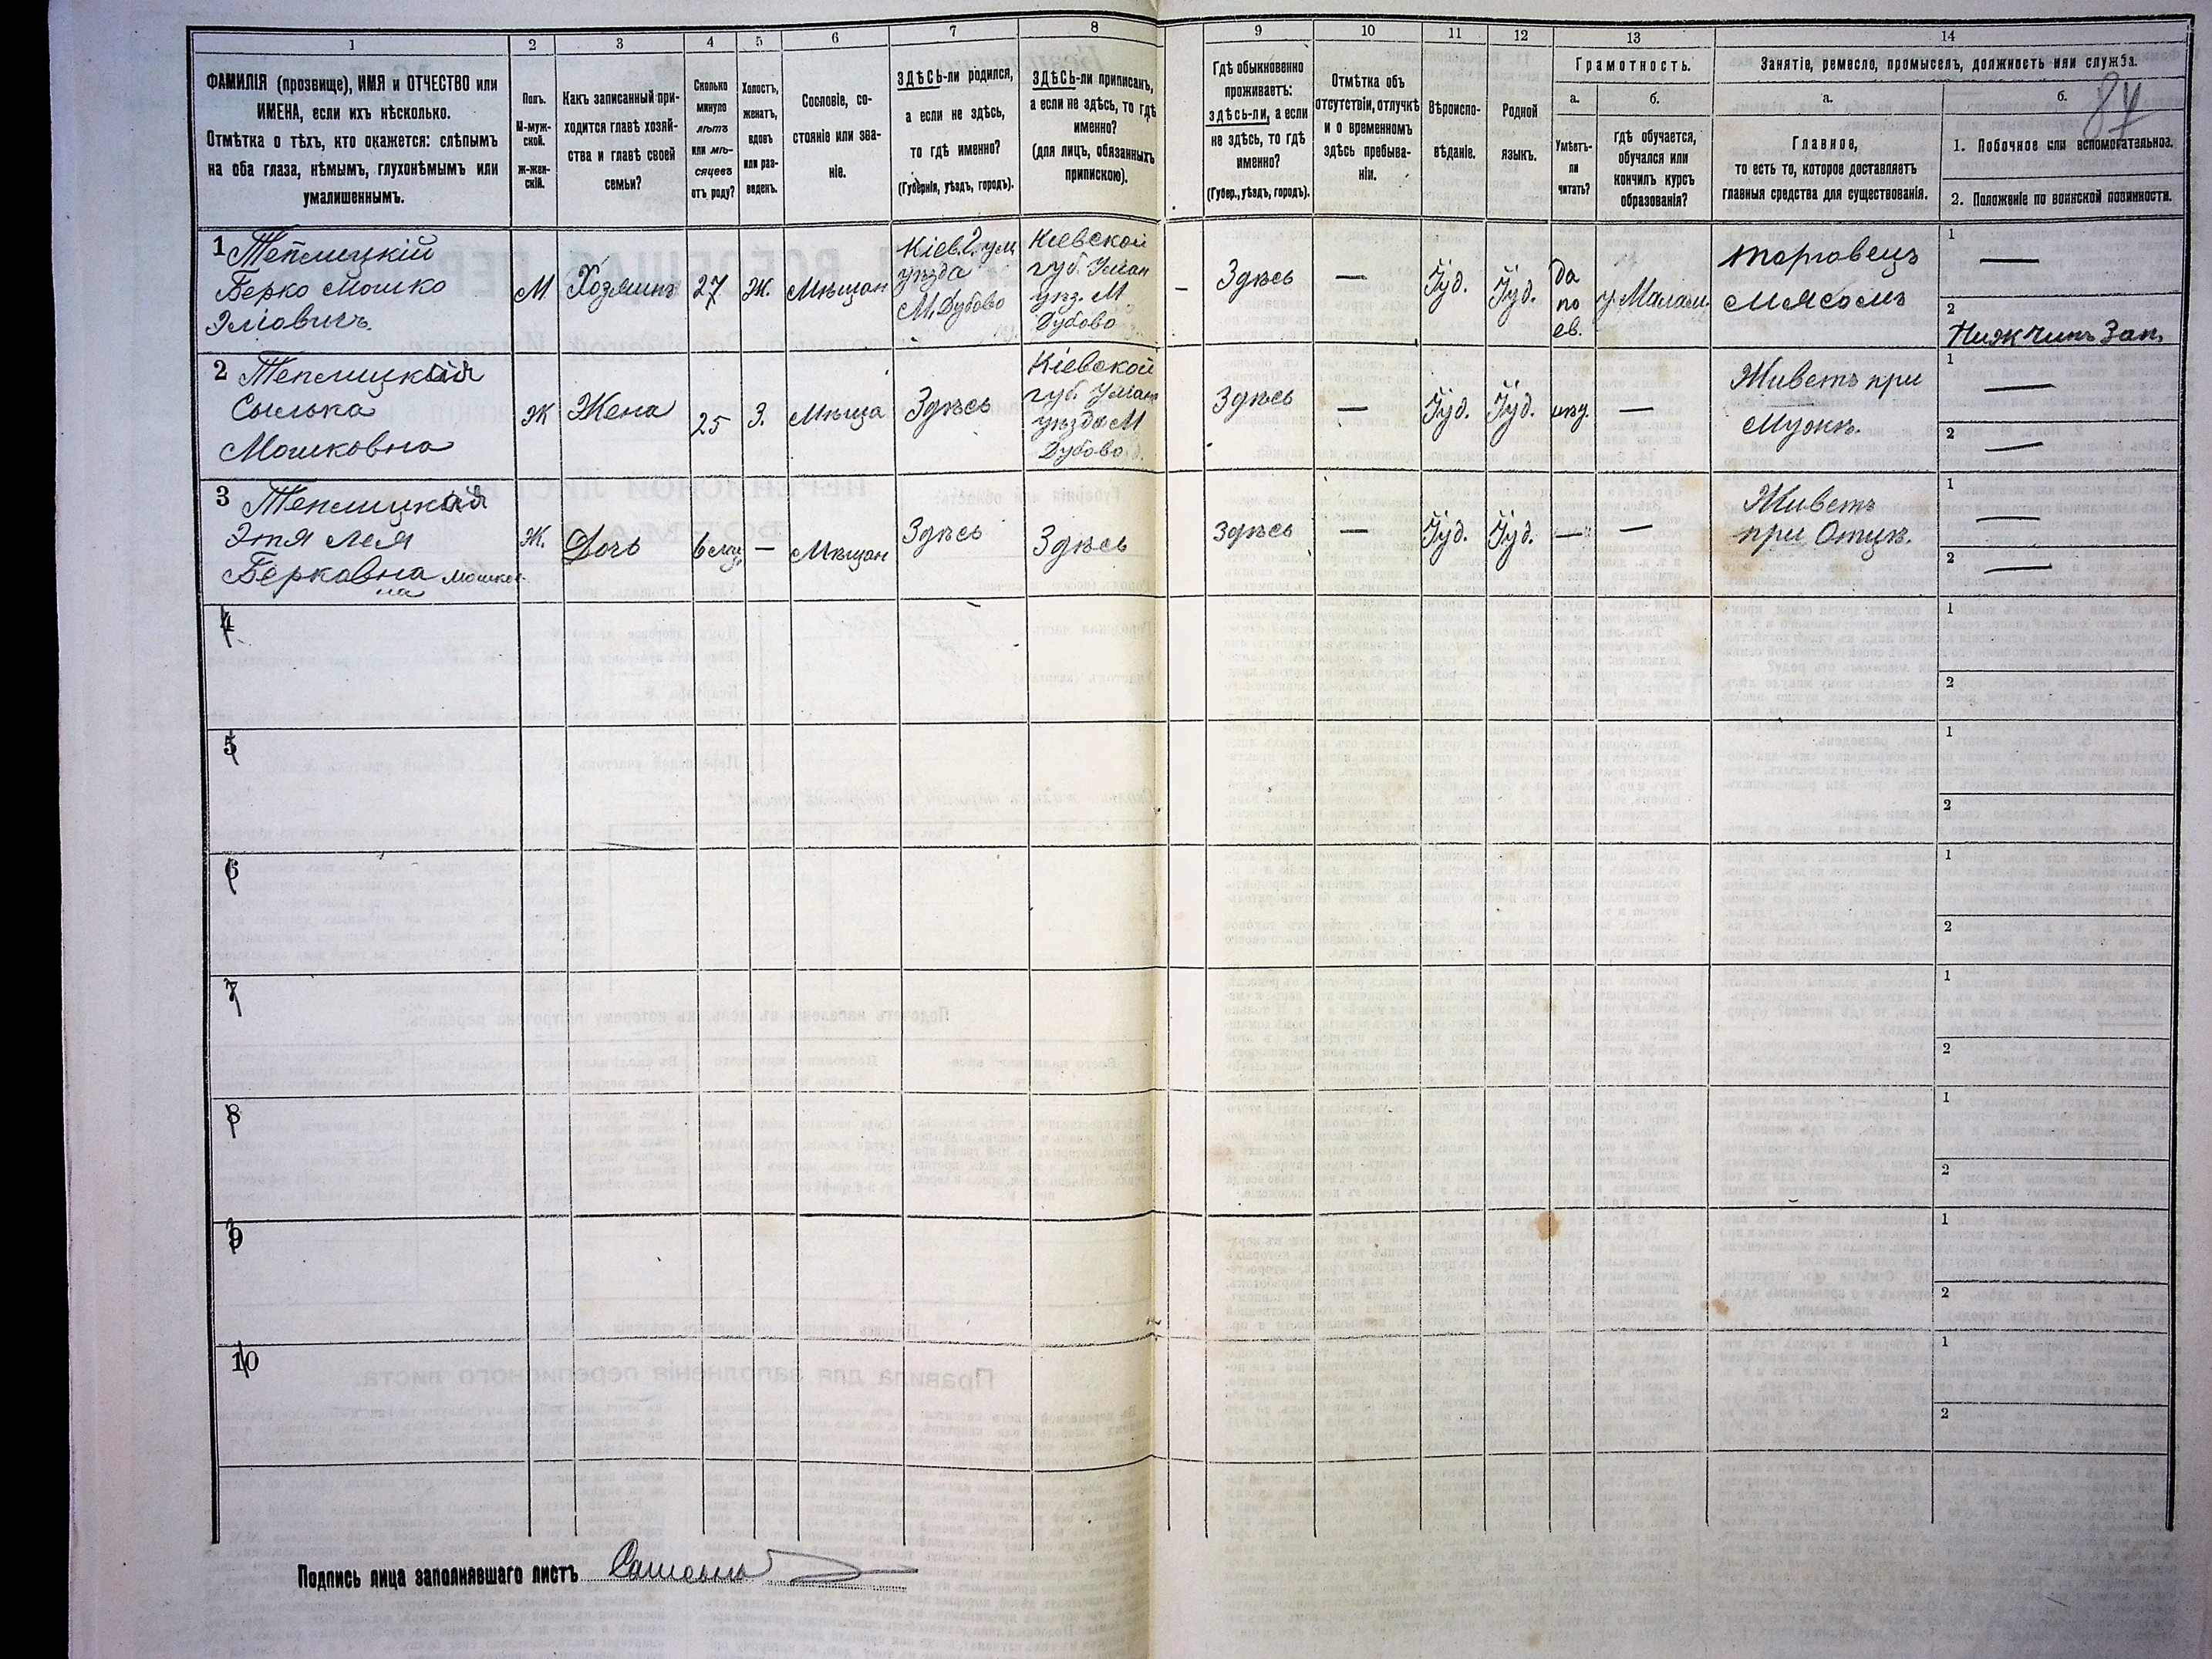 1 2 3 4 5 6 7 8 9 10 11 12 13 14
ФАМИЛІЯ (прозвище), ИМЯ и ОТЧЕСТВО или
ИМЕНА, если ихъ нѣсколько.
Отмѣтка о тѣхъ, кто окажется: слѣпымъ
на оба глаза, нѣмымъ, глухонѣмымъ или
умалишеннымъ.
Полъ.
М-муж-
ской.
Ж-жен-
скій.
Какъ записанный при-
ходится главѣ хозяй-
ства и главѣ своей
семьи?
Сколько
минуло
лѣтъ
или мѣ-
сяцевъ
отъ роду?
Холостъ,
женатъ,
вдовъ
или раз-
веденъ.
Сословіе, со-
стояніе или зва-
ніе.
ЗДѢСЬ-ли родился,
а если не здѣсь,
то гдѣ именно?
(Губернія, уѣздъ, городъ).
ЗДѢСЬ-ли приписанъ,
а если не здѣсь, то гдѣ
именно?
(для лицъ, обязанныхъ
припискою).
Гдѣ обыкновенно
проживаетъ:
здѣсь-ли, а если
не здѣсь, то гдѣ
именно?
(Губер., уѣздъ, городъ).
Отмѣтка объ
отсутствіи, отлучкѣ
и о временномъ
здѣсь пребыва-
ніи.
Вѣроиспо-
вѣданіе.
Родной
языкъ.
Грамотность.
а.
Умѣетъ-
ли
читать?
б.
гдѣ обучается,
обучался или
кончилъ курсъ
образованія?
Занятіе, ремесло, промыселъ, должность или служба.
а.
Главное,
то есть то, которое доставляетъ
главныя средства для существованія.
б.
87
1. Побочное или вспомогательное.
2. Положеніе по воинской повинности.
1 Теплицкій
Берко Мошко
М. Хозяинъ 27 Ж. Мѣщан
Кіев. г. Ум
уѣзда
М. Дубово
Кіевской
губ. Уман
уѣз. М.
Дубово
Здѣсь — Іуд. Іуд.
да
по
ев.
торговецъ
мясомъ
1 —
2
Ниж Чинъ Зап.
2 Теплицкая
Сылька
Мошковна
Ж Жена 25 З. Мѣща Здѣсь
Кіевской
губ. Уман
уѣзда М
Дубово
Здѣсь — Іуд. Іуд. —
Живетъ при
Мужѣ.
1 —
2 —
3 Теплицкая
Этя Лея
Берковна Мошков
на
Ж. Дочь 6 мц. — Мѣщан Здѣсь Здѣсь Здѣсь — Іуд. Іуд. — —
Живетъ
при Отцѣ.
1 —
2 —
4 1
2
5 1
2
6 1
2
7 1
2
8 1
2
9 1
2
10 1
2
Подпись лица заполнявшаго листъ